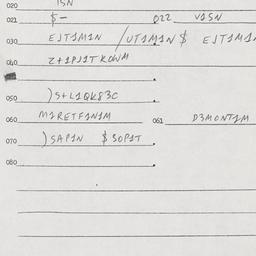 020 ISN
021 $- 022 VISN
030 EJTIMIN /UTIMIN $ EJTIMI
040 Z+IPJIT KOWM
050 )S+LIQK83C
060 MIRETFINIM 061 D3MONTIM
070 )SAPIN $30PIT
080